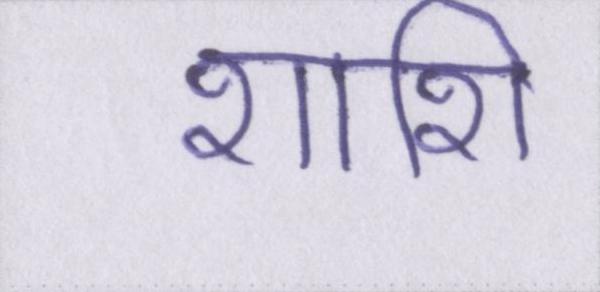 शाशि